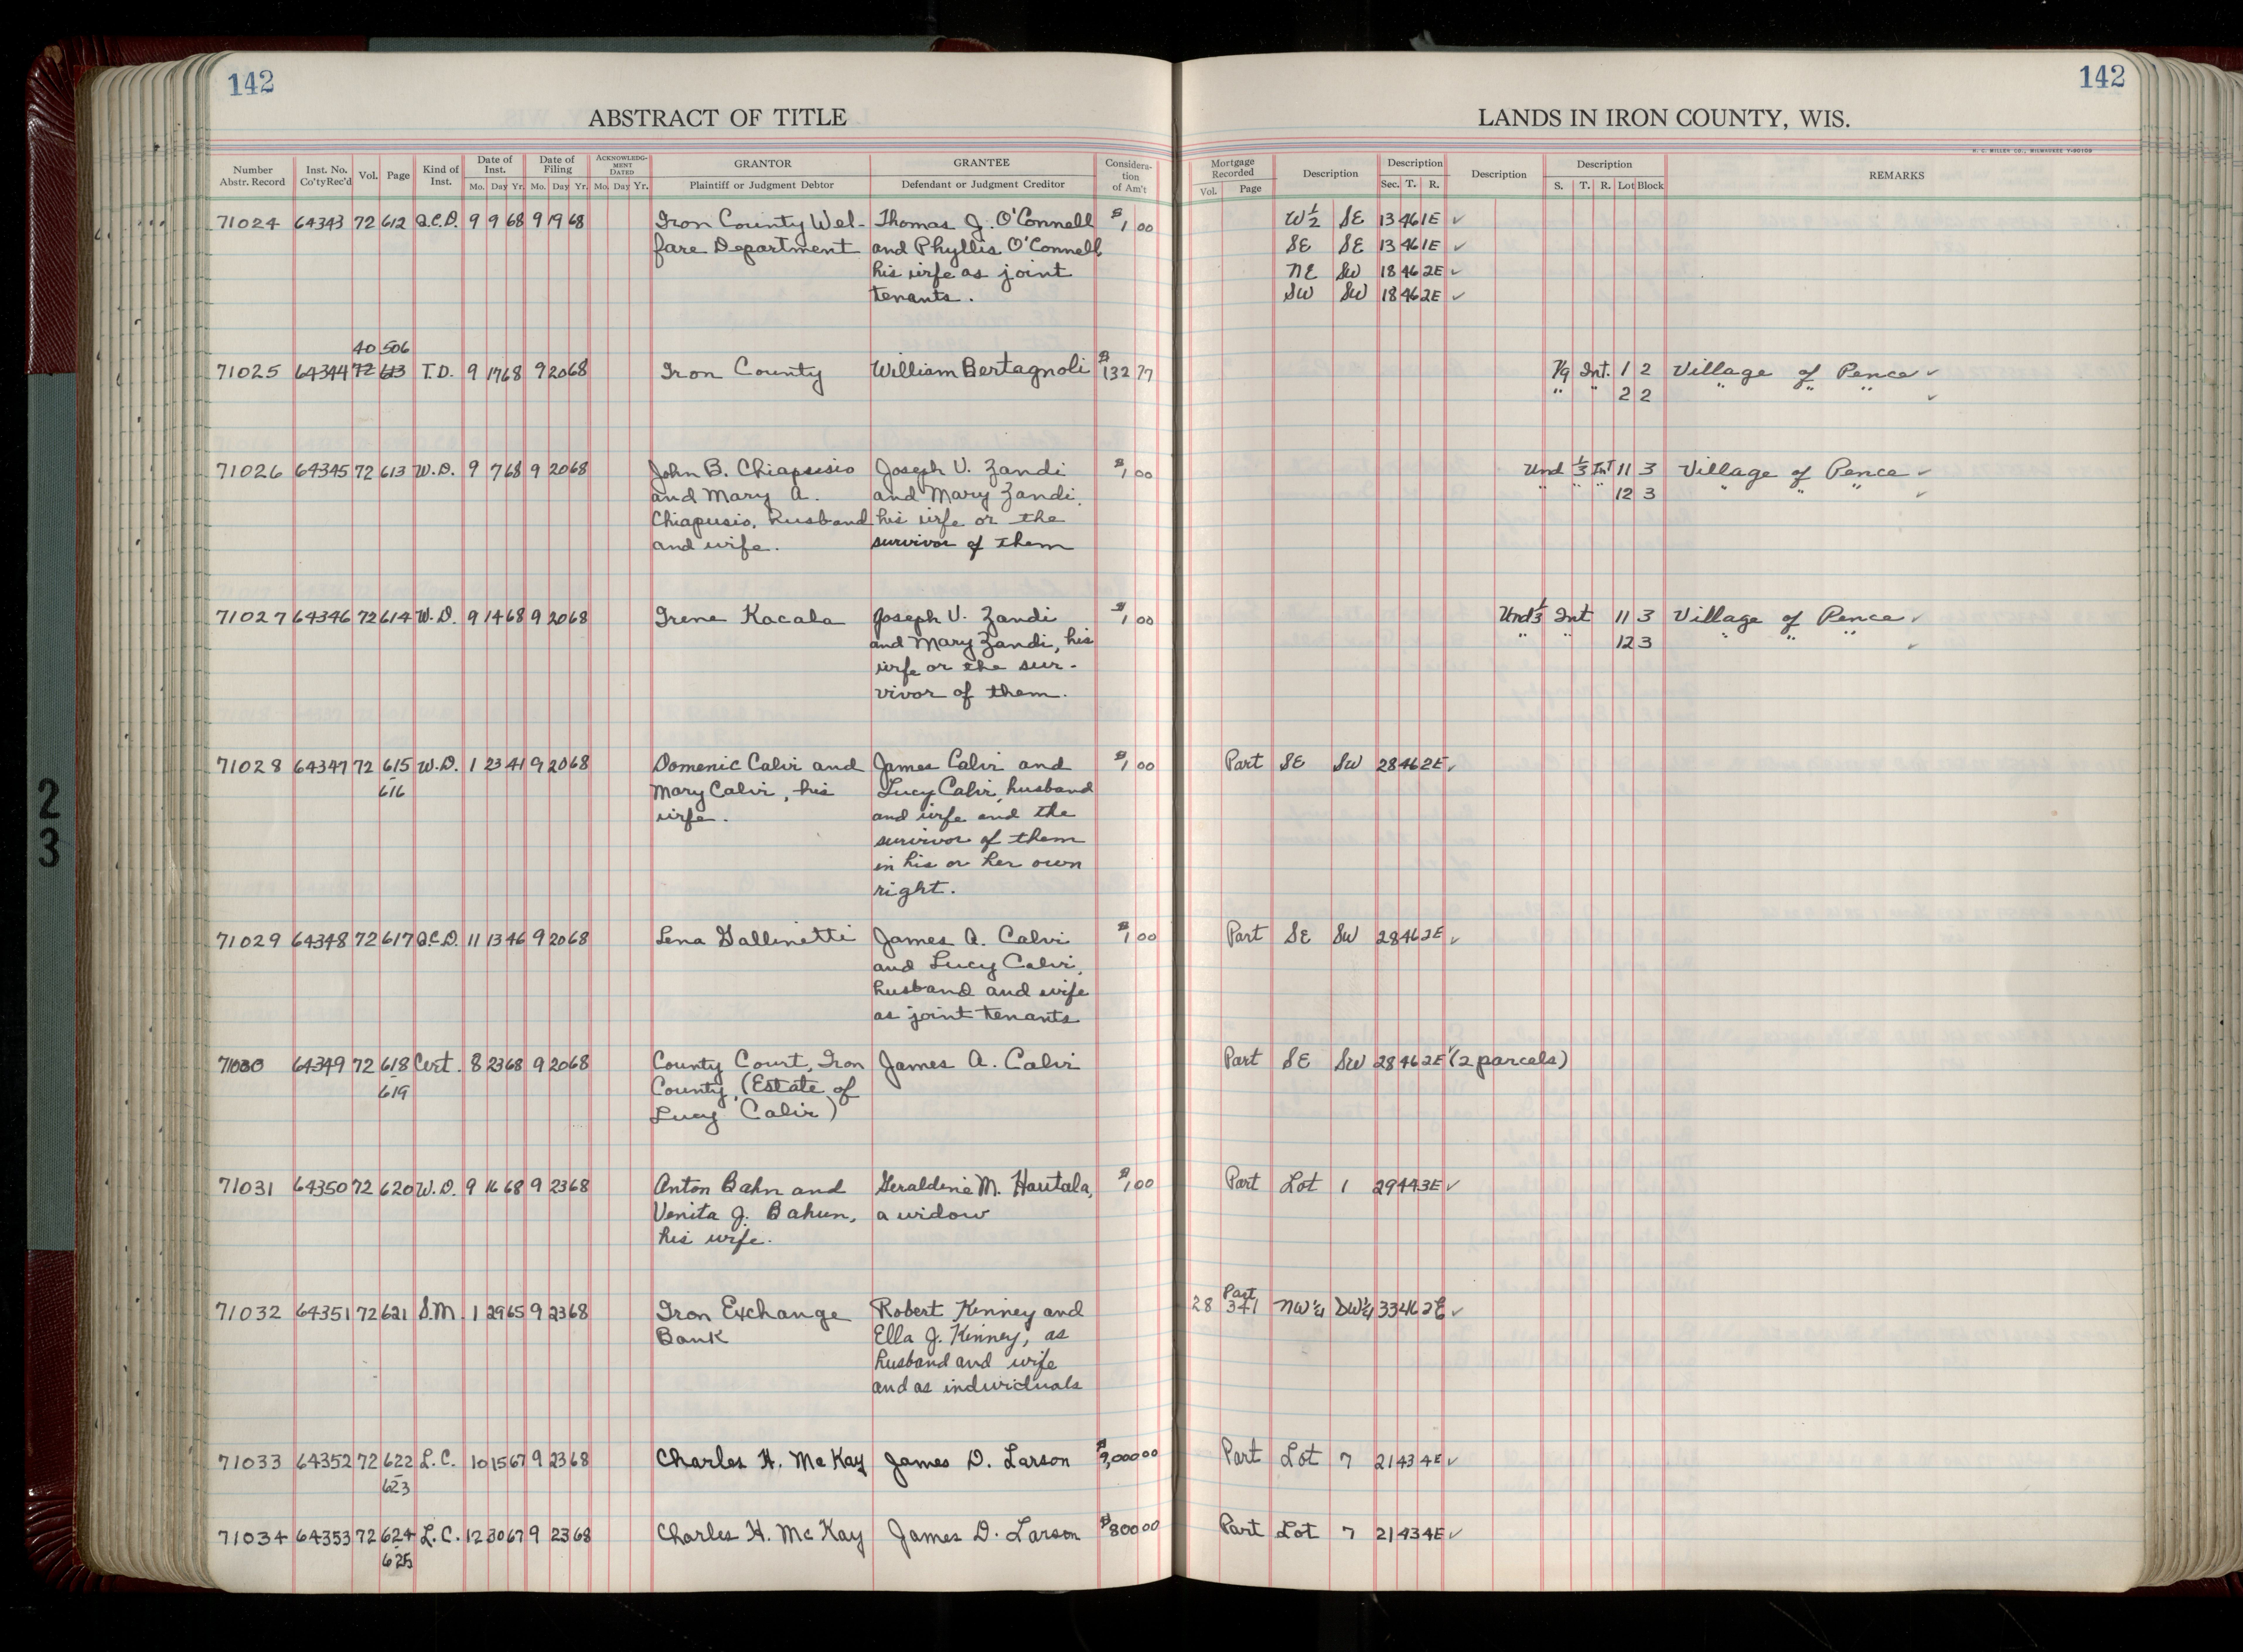 142
ABSTRACT OF TITLE
Number Abstr. Record | Inst. No. Co'ty Rec'd | Vol. | Page | Kind of Inst. | Date of Inst. Mo. Day Yr. | Date of Filing Mo. Day Yr. | ACKNOWLEDGMENT DATED Mo. Day Yr. | GRANTOR Plaintiff or Judgment Debtor | GRANTEE Defendant or Judgment Creditor | Consideration of Am't
71024 64343 72 612 Q.C.D. 9 9 68 9 19 68 Iron County Wel- Thomas J. O'Connell $1 00
fare Department and Phyllis O'Connell
his wife as joint
tenants.
40 506
71025 64344 72 613 T.D. 9 17 68 9 20 68 Iron County William Bertagnoli $132 77
71026 64345 72 613 W.D. 9 7 68 9 20 68 John B. Chiapusio Joseph V. Zandi $1 00
and Mary A. and Mary Zandi,
Chiapusio, husband his wife or the
and wife. survivor of them
71027 64346 72 614 W.D. 9 14 68 9 20 68 Irene Kacala Joseph V. Zandi $1 00
and Mary Zandi, his
wife or the sur-
vivor of them.
71028 64347 72 615 W.D. 1 23 41 9 20 68 Domenic Calvi and James Calvi and $1 00
- 616 Mary Calvi, his Lucy Calvi, husband
wife. and wife and the
survivor of them
in his or her own
right.
71029 64348 72 617 Q.C.D. 11 13 46 9 20 68 Lena Gallinetti James A. Calvi $1 00
and Lucy Calvi,
husband and wife
as joint tenants
71030 64349 72 618 Cert. 8 23 68 9 20 68 County Court, Iron James A. Calvi
- 619 County, (Estate of
Lucy Calvi)
71031 64350 72 620 W.D. 9 16 68 9 23 68 Anton Bahn and Geraldine M. Hautala, $1 00
Venita J. Bahun, a widow
his wife.
71032 64351 72 621 S.M. 1 29 65 9 23 68 Iron Exchange Robert Kinney and
Bank Ella J. Kinney, as
husband and wife
and as individuals
71033 64352 72 622 L.C. 10 15 67 9 23 68 Charles H. McKay James D. Larson $9,000 00
- 623
71034 64353 72 624 L.C. 12 30 67 9 23 68 Charles H. McKay James D. Larson $800 00
- 625
142
LANDS IN IRON COUNTY, WIS.
H. C. MILLER CO., MILWAUKEE Y-90109
Mortgage Recorded Vol. Page | Description | Description Sec. T. R. | Description | Description S. T. R. Lot Block | REMARKS
W 1/2 SE 13 46 1E ✓
SE SE 13 46 1E ✓
NE SW 18 46 2E ✓
SW SW 18 46 2E ✓
1/9 Int. 1 2 Village of Pence ✓
" " 2 2 " " " ✓
Und 1/3 Int 11 3 Village of Pence ✓
" " " 12 3 " " " ✓
Und 1/3 Int 11 3 Village of Pence ✓
" " 12 3 " " " ✓
Part SE SW 28 46 2E ✓
Part SE SW 28 46 2E ✓
Part SE SW 28 46 2E ✓ (2 parcels)
Part Lot 1 29 44 3E ✓
Part
28 341 NW 1/4 SW 1/4 33 46 2E ✓
Part Lot 7 21 43 4E ✓
Part Lot 7 21 43 4E ✓
2
3